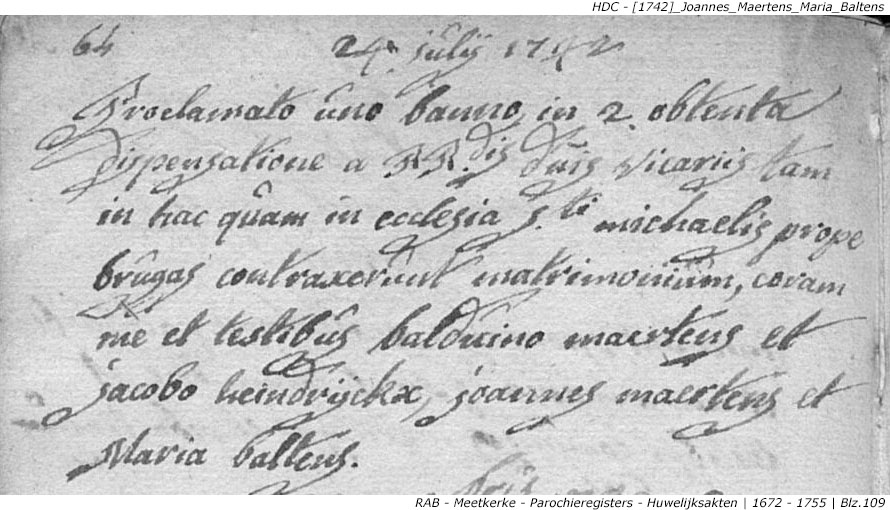 HDC - [1742]_Joannes_Maertens_Maria_Baltens
64 24 julij 1742
Proclamato uno banno, in 2. obtenta
dispensatione a RR.dis dnis vicariis tam
in hac quam in ecclesia S.ti michaelis prope
brugas contraxerunt matrimonium, coram
me et testibus balduino maertens et
jacobo heindrijckx, joannes maertens et
Maria baltens.
RAB - Meetkerke - Parochieregisters - Huwelijksakten | 1672 - 1755 | Blz.109